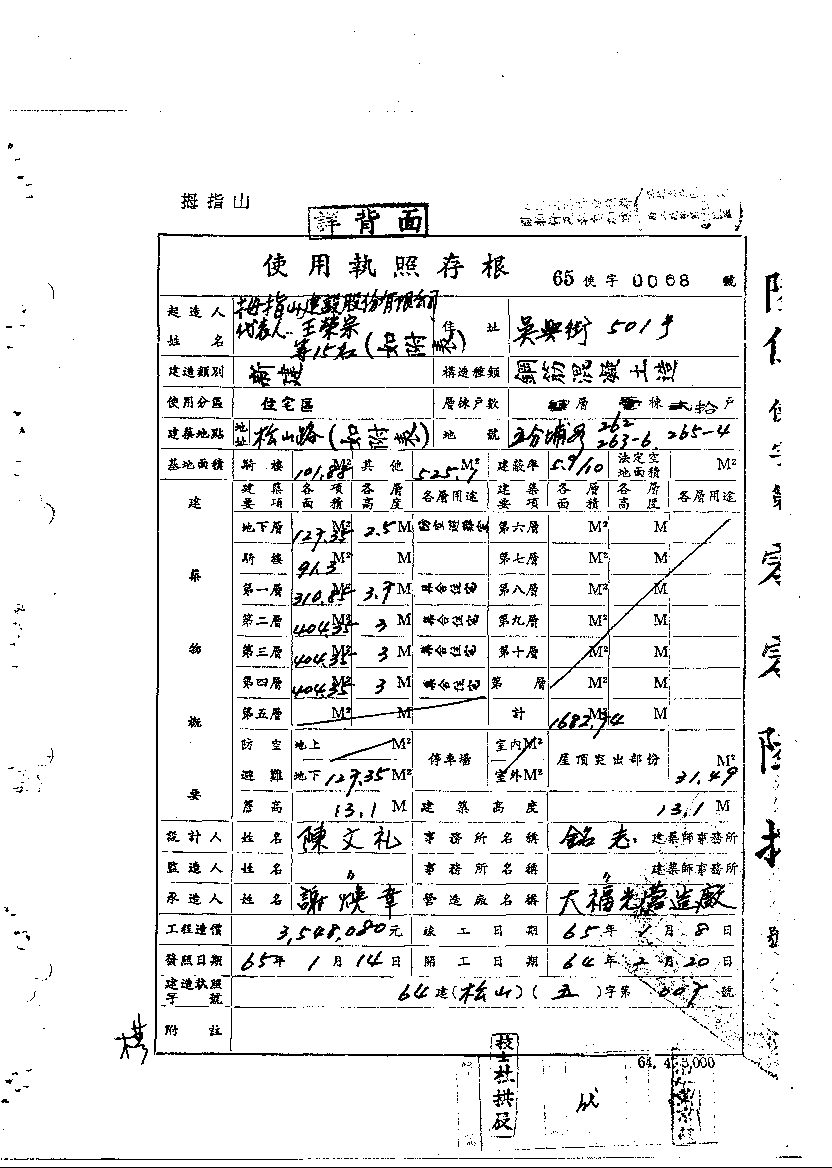 拇指山
詳背面
使用執照存根 65使字0068號
起造人姓名 拇指山建設股份有限公司 代表人：王榮宗 等15名(如附表) 住址 吳興街501号
建造類別 新建 構造種類 鋼筋混凝土造
使用分區 住宅區 層棟戶數 層 棟 貳拾戶
建築地點 地址 松山路(如附表) 地號 五分埔 262 263-6. 265-4
基地面積 騎樓 101.88 M² 其他 525.7 M² 建蔽率 5.9/10 法定空地面積 M²
建築物概要 建築要項 各項面積 各層高度 各層用途 建築要項 各層面積 各層高度 各層用途
地下層 127.35 M² 2.5 M 第六層 M² M
騎樓 91.3 M² M 第七層 M² M
第一層 310.85 M² 3.9 M 集合住宅 第八層 M² M
第二層 404.35 M² 3 M 集合住宅 第九層 M² M
第三層 404.35 M² 3 M 集合住宅 第十層 M² M
第四層 404.35 M² 3 M 集合住宅 第 層 M² M
第五層 M² M 計 1682.94 M² M
防空避難 地上 M² 停車場 室內M² 屋頂突出部份 M²
地下 127.35 M² 室外M² 31.49
簷高 13.1 M 建築高度 13.1 M
設計人 姓名 陳文礼 事務所名稱 銘志 建築師事務所
監造人 姓名 〃 事務所名稱 〃 建築師事務所
承造人 姓名 謝煥章 營造廠名稱 大福光營造廠
工程造價 3,548,080元 竣工日期 65年1月8日
發照日期 65年1月14日 開工日期 64年2月20日
建造執照字號 64建(松山)(五)字第009號
附註
64. 4. 3,000
技士杜拱辰
代